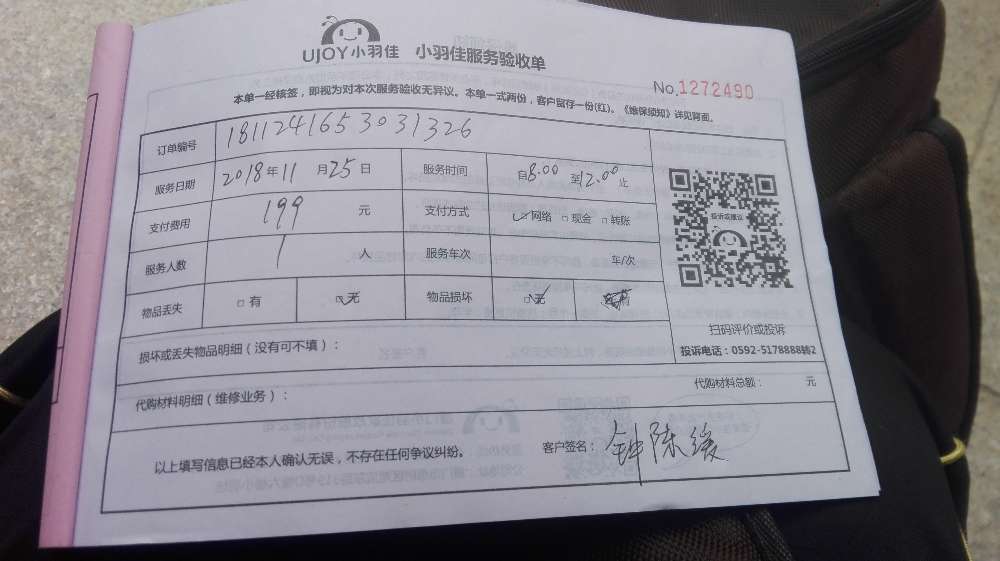 UJOY小羽佳 小羽佳服务验收单
No.1272490
本单一经核签，即视为对本次服务验收无异议。本单一式两份，客户留存一份(红)。《维保须知》详见背面。
订单编号 1811241653031326
服务日期 2018年11月25日 服务时间 自8.00至12.00止
支付费用 199 元 支付方式 网络 现金 转账
服务人数 1 人 服务车次 车/次
物品丢失 有 无 物品损坏 无
投诉或建议
扫码评价或投诉
投诉电话：0592-5178888转2
损坏或丢失物品明细（没有可不填）：
代购材料明细（维修业务）： 代购材料总额： 元
以上填写信息已经本人确认无误，不存在任何争议纠纷。 客户签名：钟陈